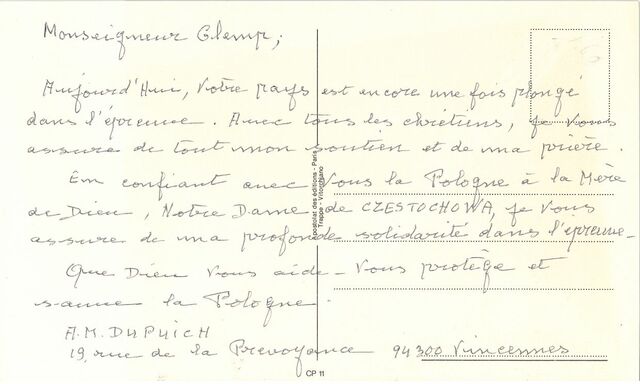 Monseigneur Glemp,
Aujourd'Hui, Votre pays est encore une fois plongé
dans l'épreuve. Avec tous les chrétiens, je Vous
assure de tout mon soutien et de ma prière.
En confiant avec Vous la Pologne à la Mère
de Dieu, Notre Dame de CZESTOCHOWA, je Vous
assure de ma profonde solidarité dans l'épreuve.
Que Dieu Vous aide - Vous protège et
sauve la Pologne.
A.M. DUPUICH
19, rue de la Prevoyance 94300 Vincennes
Apostolat des éditions - Paris
CP 11